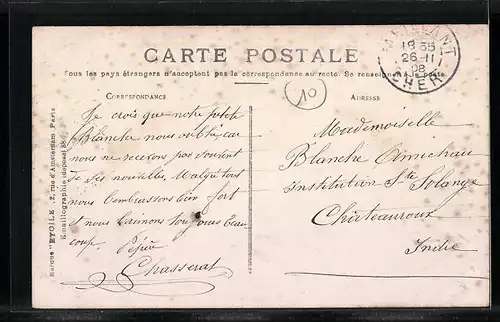 CARTE POSTALE
Tous les pays étrangers n'acceptent pas la correspondance au recto. Se renseigner à la poste
MEILLANT
18 35
26-11
08
CHER
10
CORRESPONDANCE
ADRESSE
Je crois que notre petite
Blanche nous oublie, car
nous ne recevons pas souvent
de ses nouvelles. Malgré tout
nous l'embrassons bien fort
et nous l'aimons toujours beau
coup.
Chasserat
Mademoiselle
Blanche
Institution Ste Solange
Châteauroux
Indre
Marque "ETOILE", rue d'Amsterdam Paris
Emaillographie (déposé)